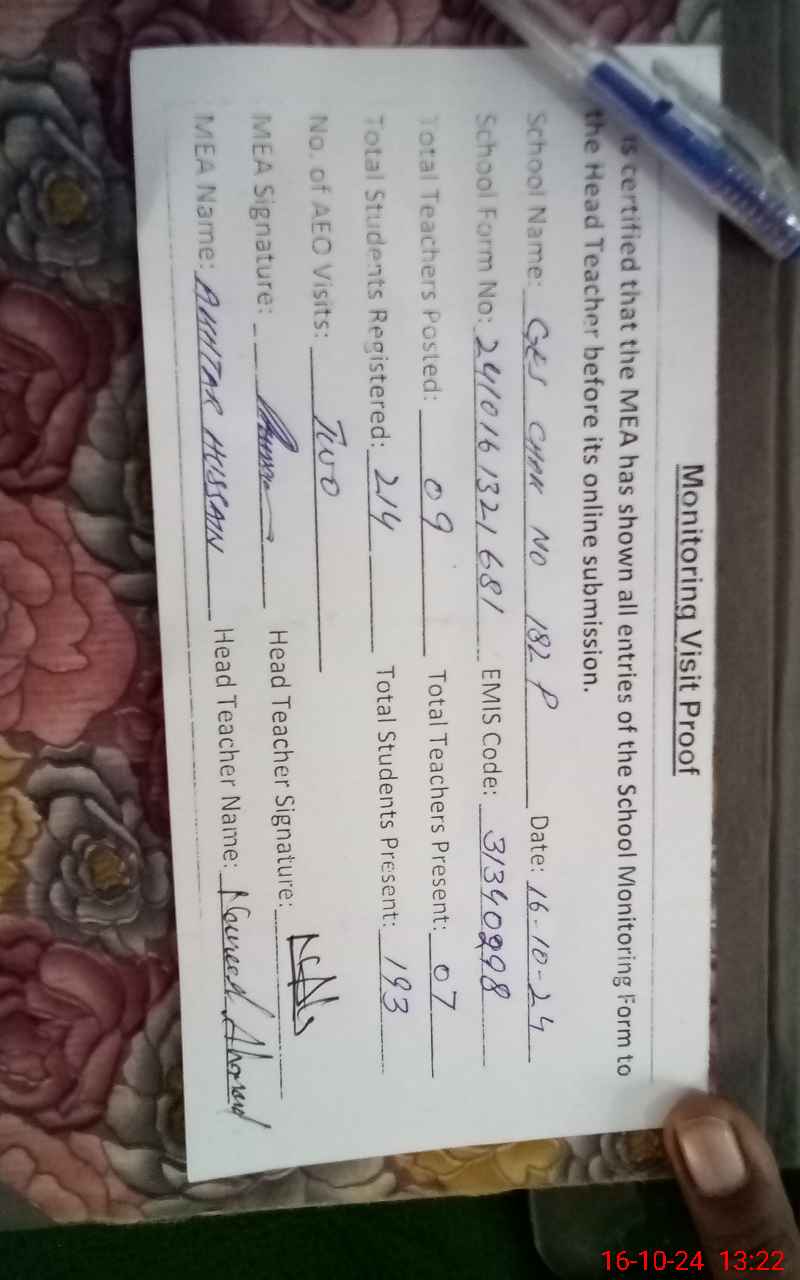 Monitoring Visit Proof
is certified that the MEA has shown all entries of the School Monitoring Form to
the Head Teacher before its online submission.
School Name: GES CHAK NO 182 P Date: 16-10-24
School Form No: 2410161321681 EMIS Code: 31340298
Total Teachers Posted: 09 Total Teachers Present: 07
Total Students Registered: 214 Total Students Present: 193
No. of AEO Visits: TWO
MEA Signature: Head Teacher Signature:
MEA Name: AKHTAR HUSSAIN Head Teacher Name: Naveed Ahmad
16-10-24 13:22